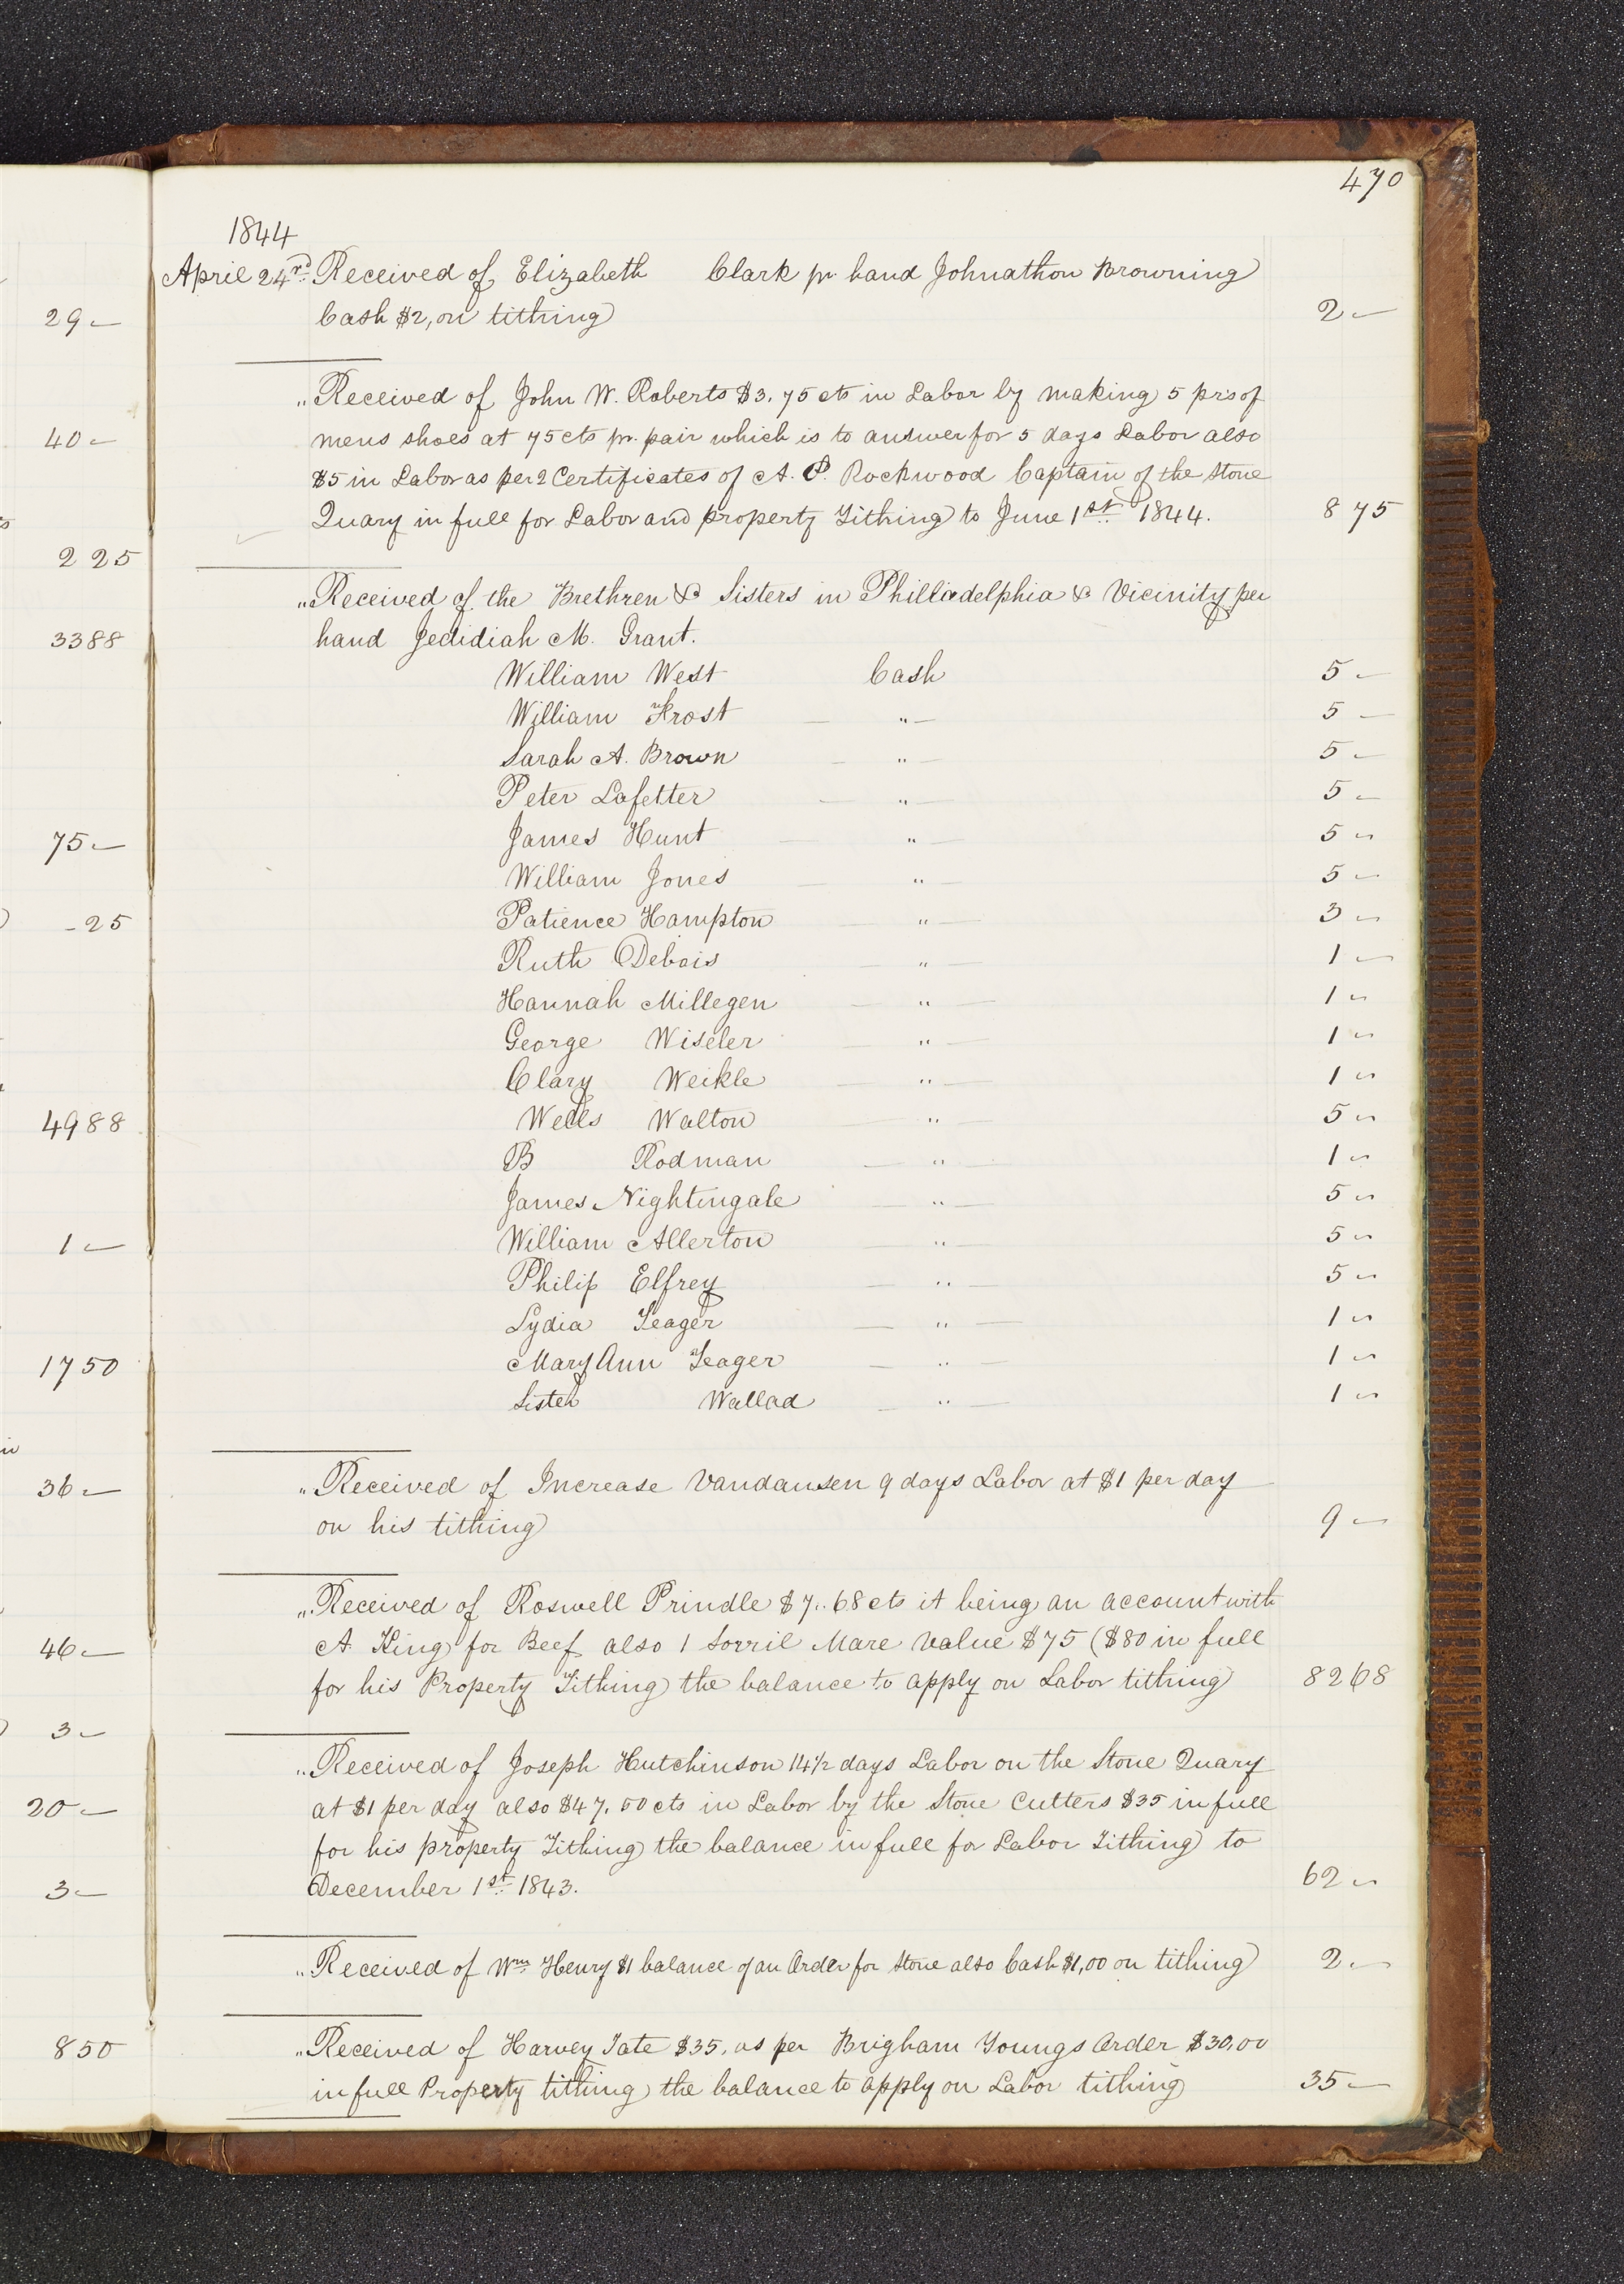 470
1844
April 24th Received of Elizabeth Clark pr. hand Johnathon Browning
Cash $2, on tithing 2 —
" Received of John W. Roberts $3.75 cts in Labor by making 5 prs of
mens shoes at 75 cts pr. pair which is to answer for 5 days Labor also
$5 in Labor as per 2 Certificates of A. P. Rockwood Captain of the Stone
Quary in full for Labor and property Tithing to June 1st 1844. 8 75
" Received of the Brethren & Sisters in Philladelphia & Vicinity per
hand Jedidiah M. Grant.
William West Cash 5 —
William Frost — " — 5 —
Sarah A. Brown — " — 5 —
Peter Lafetter — " — 5 —
James Hunt — " — 5 —
William Jones — " — 5 —
Patience Hampton — " — 3 —
Ruth Debois — " — 1 —
Hannah Millegen — " — 1 —
George Wiseler — " — 1 —
Clary Weikle — " — 1 —
Wells Walton — " — 5 —
B Rodman — " — 1 —
James Nightingale — " — 5 —
William Allerton — " — 5 —
Philip Elfrey — " — 5 —
Lydia Yeager — " — 1 —
Mary Ann Yeager — " — 1 —
Sister Wallad — " — 1 —
" Received of Increase Vandausen 9 days Labor at $1 per day
on his tithing 9 —
" Received of Roswell Prindle $7.68 cts it being an account with
A King for Beef also 1 Sorril Mare Value $75 ($80 in full
for his Property Tithing the balance to apply on Labor tithing 82 68
" Received of Joseph Hutchinson 14 1/2 days Labor on the Stone Quary
at $1 per day also $47.00 cts in Labor by the Stone Cutters $35 in full
for his property Tithing the balance in full for Labor Tithing to
December 1st 1843. 62 —
" Received of Wm Henry $1 balance of an Order for Stone also Cash $1,00 on tithing 2. —
" Received of Harvey Tate $35. as per Brigham Youngs Order $30,00
in full Property tithing the balance to apply on Labor tithing 35 —
29 —
40 —
2 25
33 88
75 —
- 25
49 88
1 —
17 50
36 —
46 —
3 —
20 —
3 —
8 50